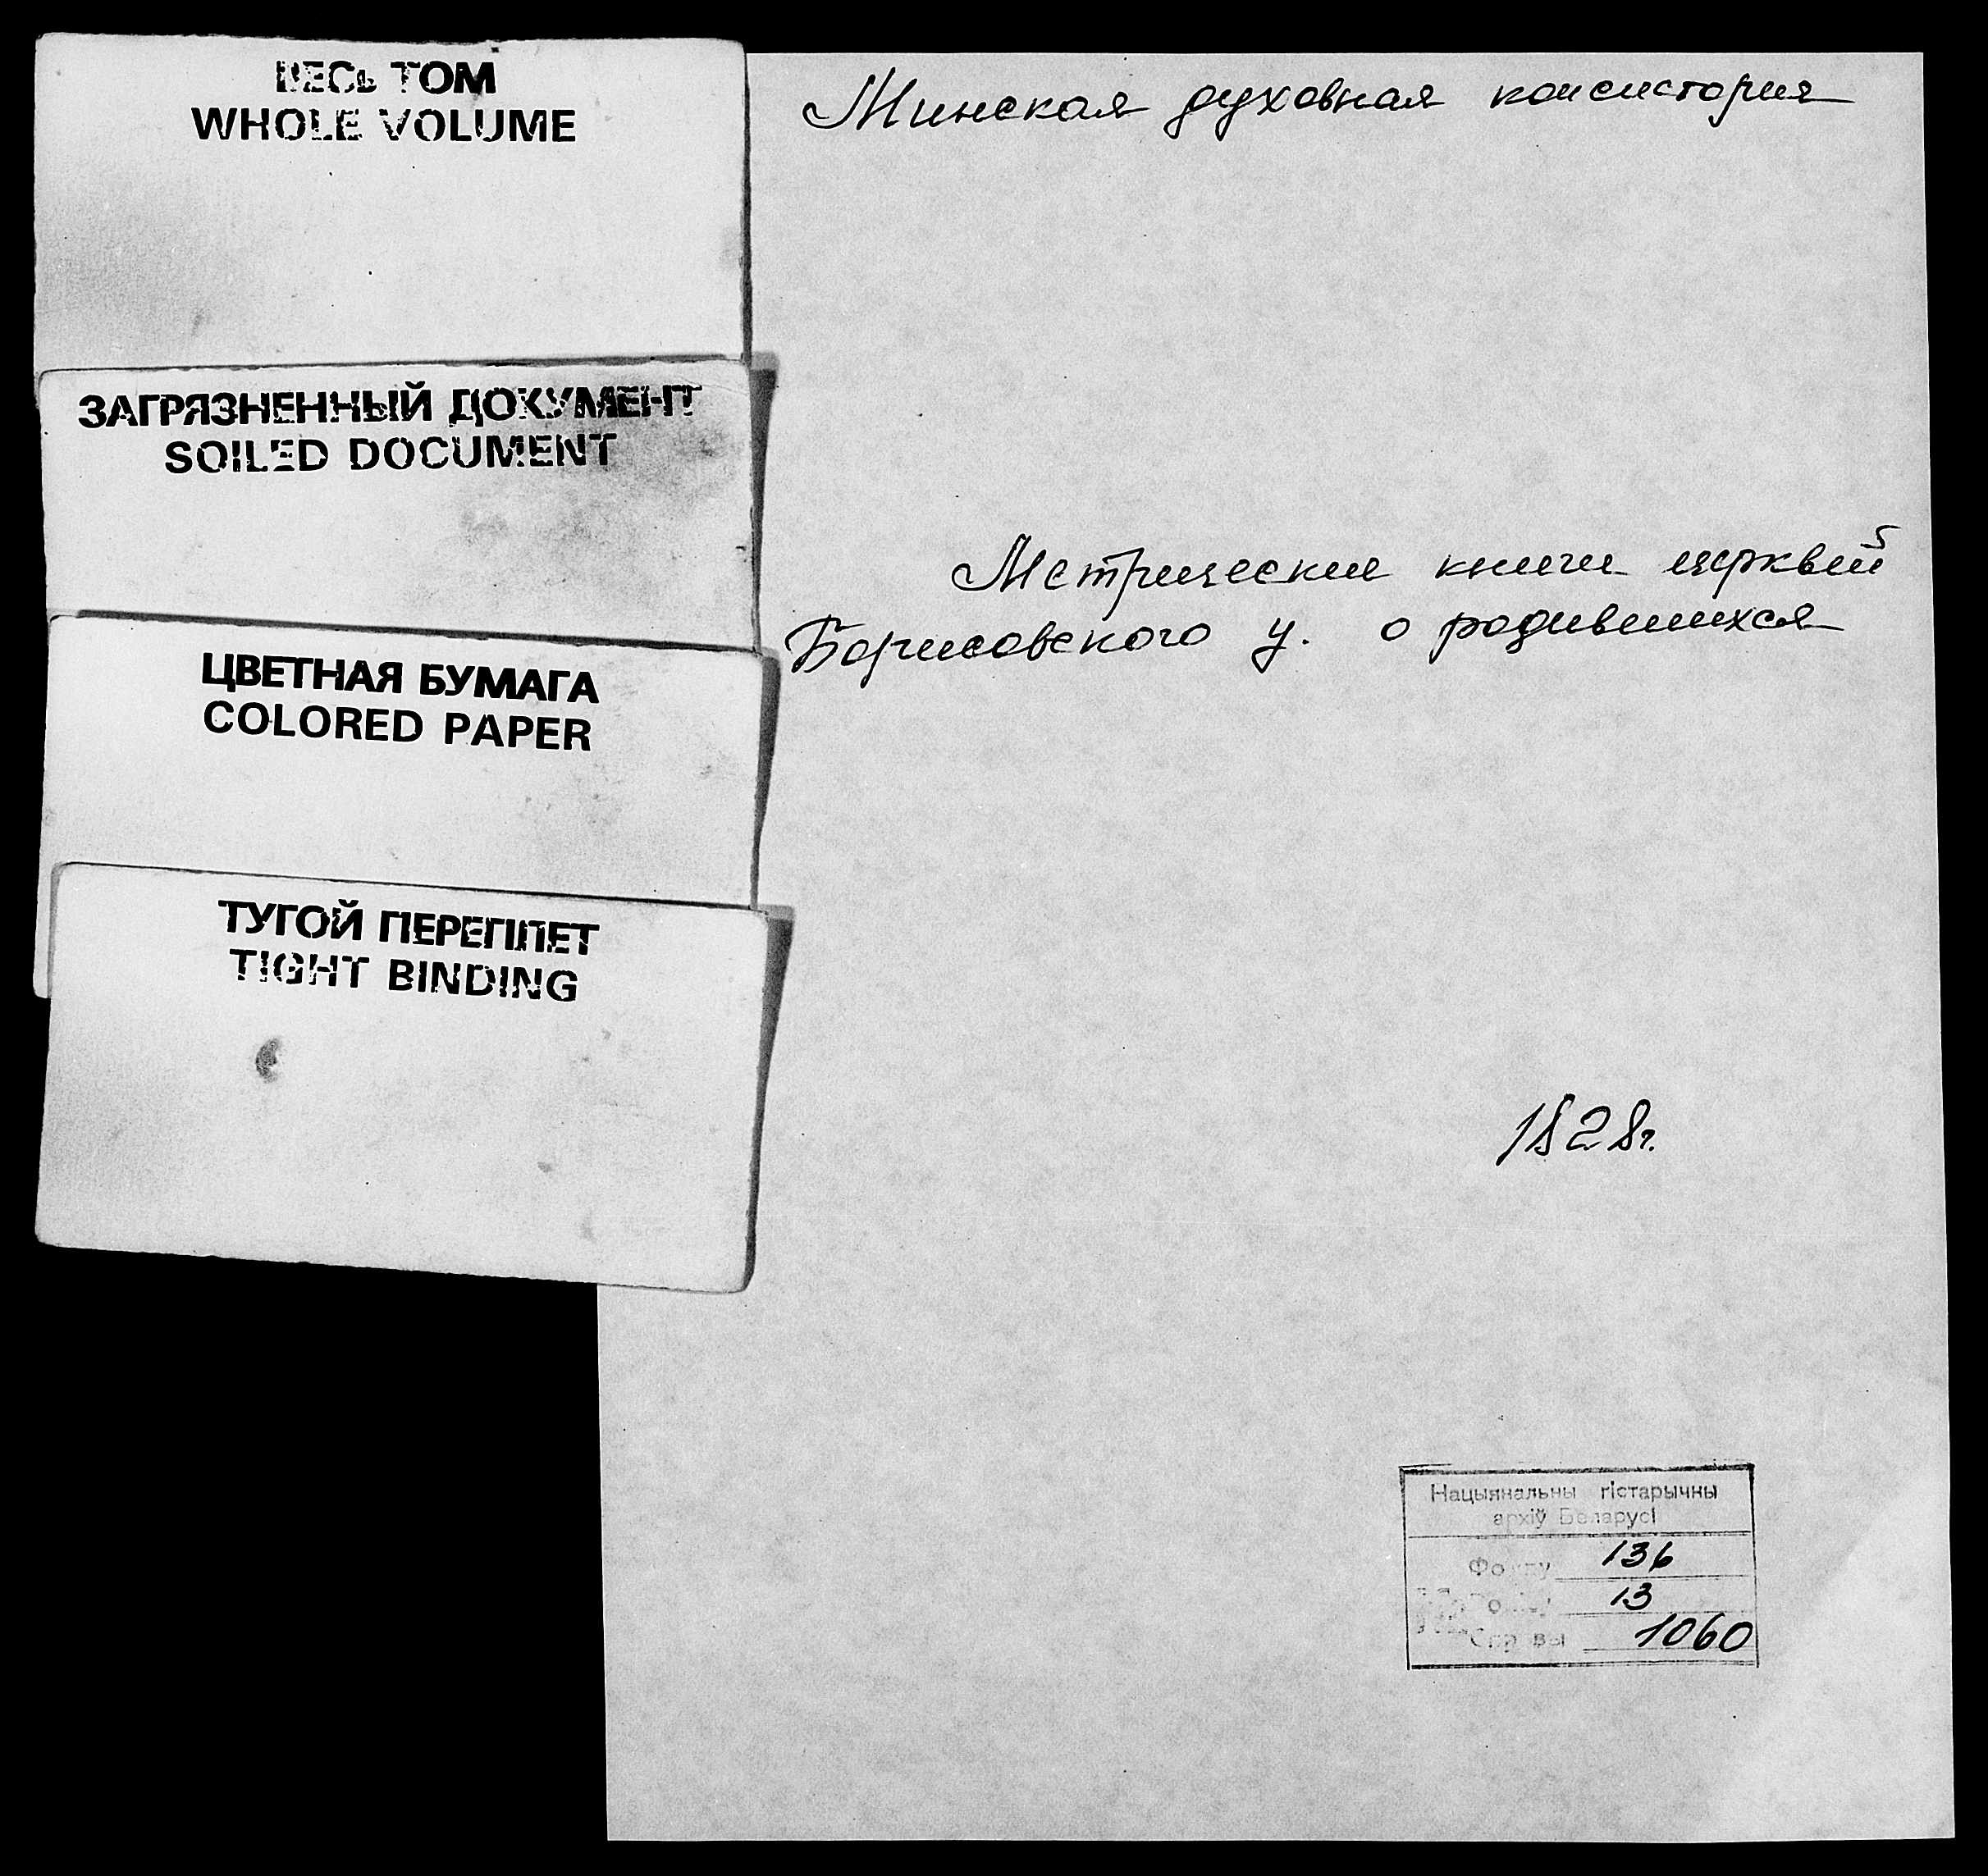 ВЕСЬ ТОМ
WHOLE VOLUME
ЗАГРЯЗНЕННЫЙ ДОКУМЕНТ
SOILED DOCUMENT
ЦВЕТНАЯ БУМАГА
COLORED PAPER
ТУГОЙ ПЕРЕПЛЕТ
TIGHT BINDING
Минская духовная консистория
Метрические книги церквей
Борисовского у. о родившихся
1828г.
Нацыянальны гістарычны
архіў Беларусі
Фонду 136
13
Справы 1060